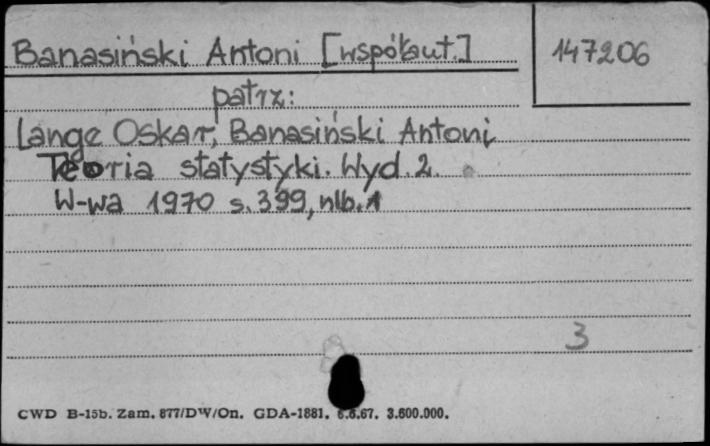 Banasiński Antoni [współaut.]
147206
patrz:
Lange Oskar, Banasiński Antoni
Teoria statystyki. Wyd. 2.
W-wa 1970 s. 399, nlb. 1
3
CWD B-15b. Zam. 877/DW/On. GDA-1881. 6.6.67. 3.600.000.